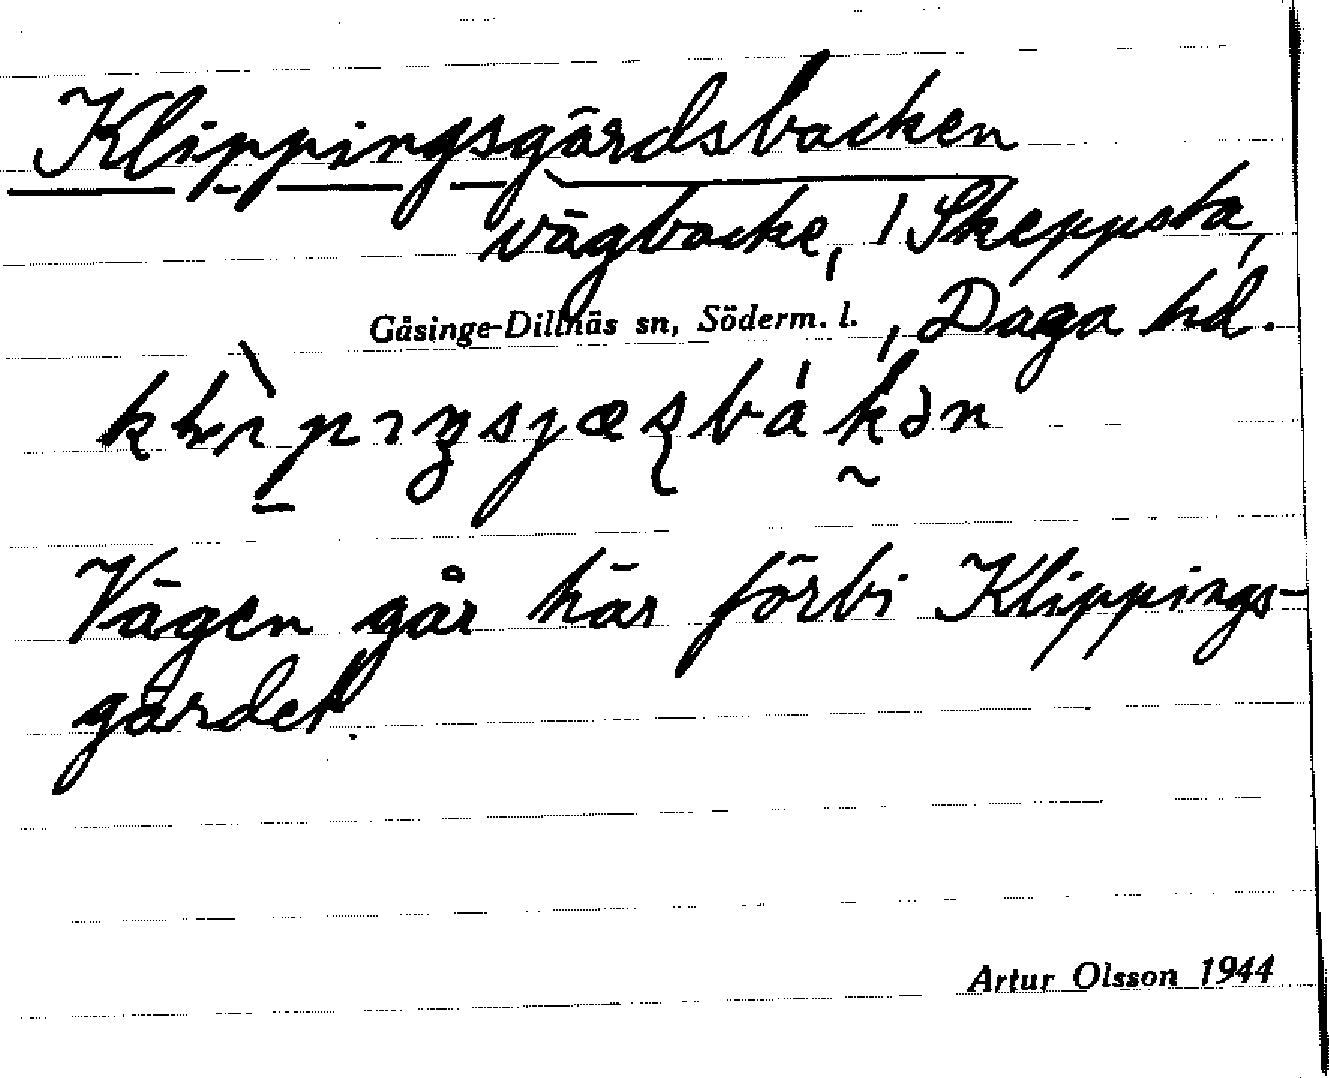 Klippingsgärdsbacken
vägbacke, 1 Skeppsta,
Gåsinge-Dillnäs sn, Söderm. l. , Daga hd.
Vägen går här förbi Klippings-
gärdet.
Artur Olsson 1944